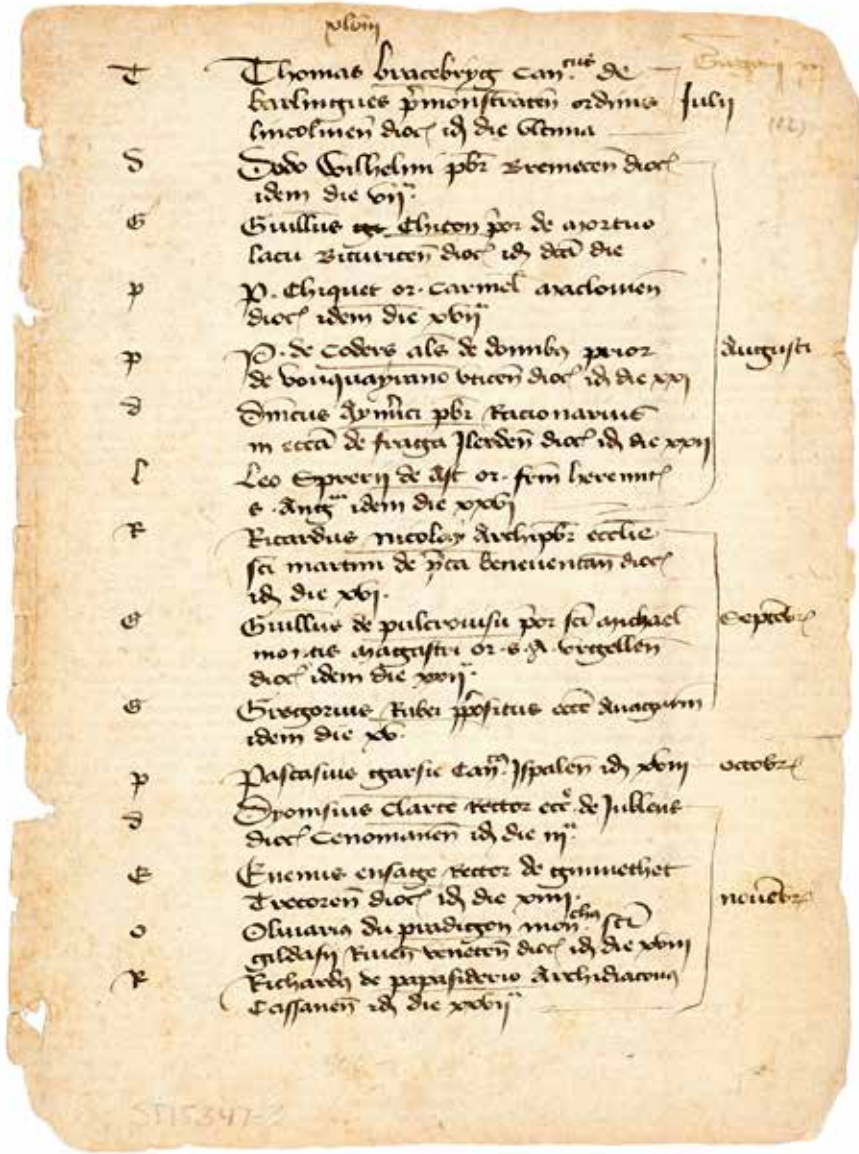 xlviij
T Thomas bracebryg Can.cus de
barlingues p̄monstraten̄ ordinis Julij
lincolinen̄ dioc̄ id̄ die vltima
(12)
D Dodo Wilhelmi pbr̄ Bremecen̄ dioc̄
idem die vij.a
G Guillus Chicon p̄or de mortuo
lacu Bituricen̄ dioc̄ id̄ dc̄a die
p P. Chiquet or. Carmel̄ maclouien̄
dioc̄ idem die xvij
p P. de Coders als̄ de domibꝫ prior Augusti
de vouquayrano vticen̄ dioc̄ id̄ die xxj
d Dnīcus Aym̄ici pbr̄ Racionarius
in eccā de fraga Jlerden̄ dioc̄ id̄ die xxij
l Leo Sprerij de Ast or. frm̄ heremit̄
s. Aug. idem die xxvj
R Ricardus nicolay Archipbr̄ ecclīe
scī martini de p̄ca beneuentan̄ dioc̄
id̄ die xvj.
G Guillus de pulcrouisu p̄or scī michael Septēbr̄
mon.tis magastri or. s. A. vrgellen̄
dioc̄ idem die xvij.
G Gregorius Rubei pp̄ositus ecc̄e
idem die xv.
p Pascasius garsie Can̄. Jspalen̄ id̄ xviij octobr̄
d Dyonisius Clarte Rector ecc̄e de Julleus
dioc̄ Cenomanen̄ id̄ die iij.a
E Euenus ensage Rector de
Trecoren̄ dioc̄ id̄ die xiiij. nouēbr̄
O Oliuariꝰ du pradigon mon.chus scī
gildasij Riuen̄ veneten̄ dioc̄ id̄ die xviij
R Richardꝰ de papasiderio Archidiaconꝰ
Cassanen̄ id̄ die xxvij
ST15347-2